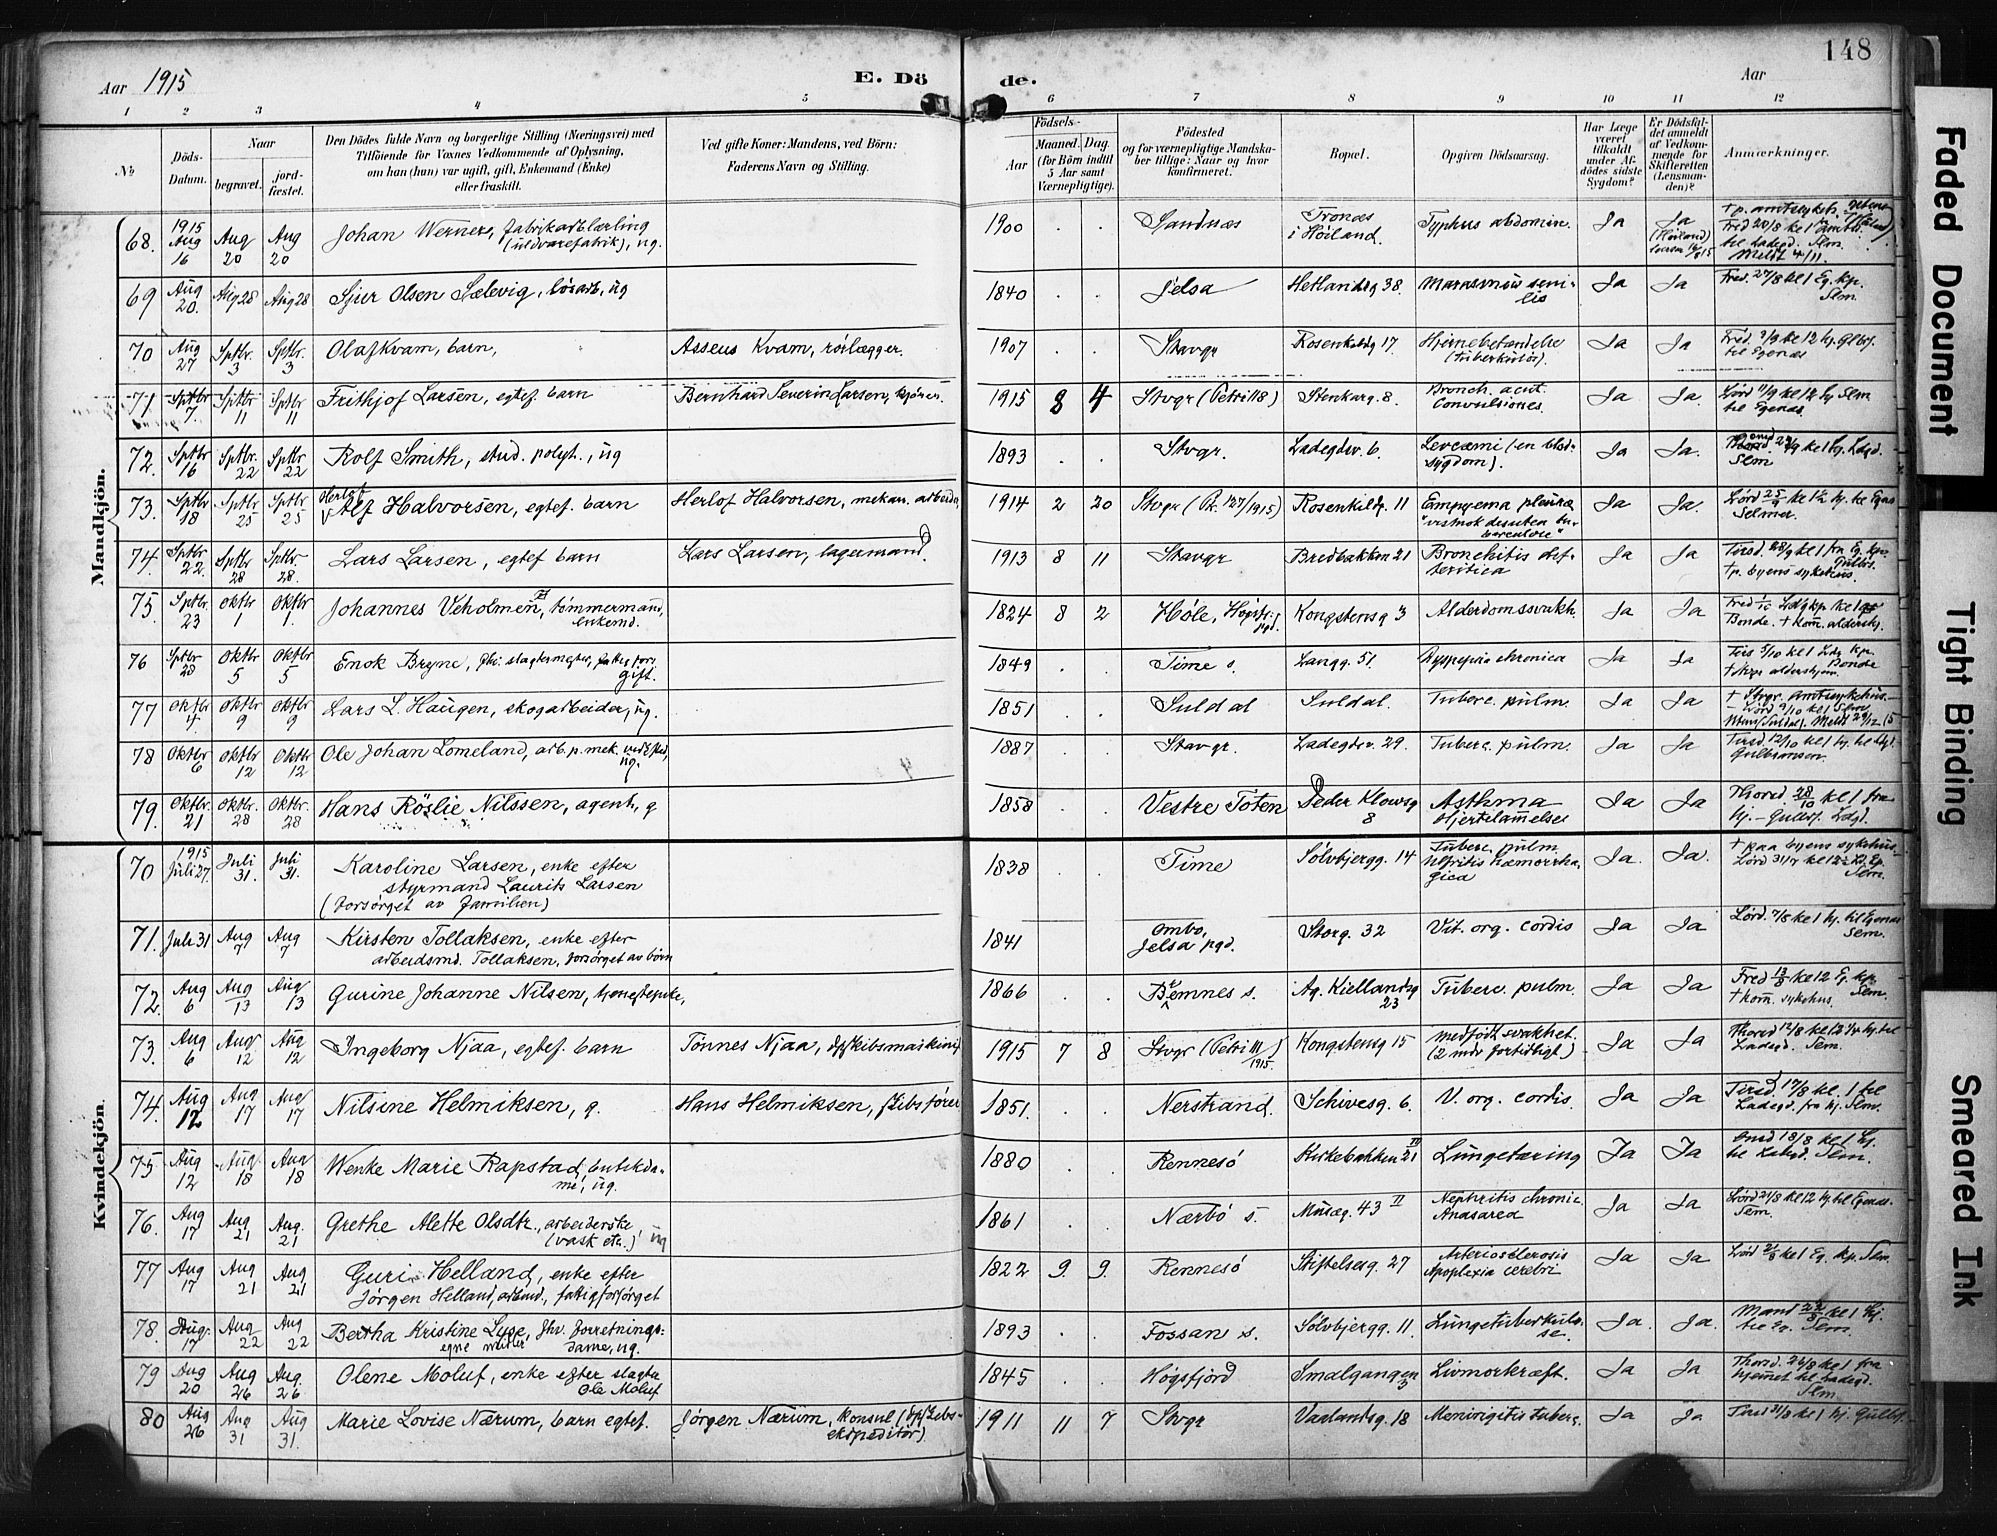 148
Aar 1915
E. Dö de.
Aar
1 2 3 4 5 6 7 8 9 10 11 12
№
Döds-Datum.
Naar
begravet.
jord-fæstet.
Den Dödes fulde Navn og borgerlige Stilling (Næringsvei) med
Tilföiende for Voxnes Vedkommende af Oplysning,
om han (hun) var ugift, gift, Enkemand (Enke)
eller fraskilt.
Ved gifte Koner: Mandens, ved Börn:
Faderens Navn og Stilling.
Födsels-
Aar
Maaned. Dag.
(for Börn indtil
5 Aar samt
Værnepligtige).
Födested
og for værnepligtige Mandska-
ber tillige: Naar og hvor
konfirmeret.
Bopæl.
Opgiven Dödsaarsag.
Har Læge
været
tilkaldt
under Af-
dödes sidste
Sygdom?
Er Dödsfal-
det anmeldt
af Vedkom-
mende for
Skifteretten
(Lensman-
den)?
Anmærkninger.
Mandkjön.
68. 1915 Aug 16 Aug 20 Aug 20 Johan Werner, fabrikarb.lærling (uldvarefabrik), ug. 1900 . . Sandnæs Tronæs i Høiland. Typhus abdomin. Ja Ja (Høiland)
69 Aug 20. Aug 28 Aug 28 Sjur Olsen Sælevig, løsarb., ug 1840 . . Jelsa Hetlandsg 38. Marasmus senilis Ja Ja Fred. 27/8 kl 1 Eg. kp. Slm.
70 Aug 27 Sptbr. 3 Sptbr. 3 Olaf Kvam, barn, Asseus Kvam, rørlægger. 1907 . . Stavgr Rosenkildg 17. Hjernebetændelse (tuberkuløs). Ja Ja Fred. 3/9 kl 12 hj. Glbs. til Egenæs
71. Sptbr 7 Sptbr 11 Sptbr 11 Frithjof Larsen, egtef barn Bernhard Severin Larsen, 1915 8 4 Stvgr (Petri 118) Stenkarg. 8. Bronch. acut. Convulsiones. Ja Ja Lørd 11/9 kl 12 hj Slm til Egenæs.
72. Sptbr 16 Sptbr 22 Sptbr 22 Rolf Smith, stud. polyt., ug 1893 . . Stvgr. Ladegdv. 6. Levcæmi (en blodsygdom). Ja Ja. 22/9 kl 1 hj. Ladgd. Slm
73. Sptbr 18 Sptbr 25 Sptbr. 25 Herlof Alf Halvorsen, egtef. barn Herlof Halvorsen, mekan. arbeider 1914 2 20 Stvgr (P. 127/1915) Rosenkildg. 11 Empyema pleuræ Ja Ja Lørd 25/9 kl 1½ hj. til Egnæs Selmer.
74. Sptbr. 22. Sptbr 28 Sptbr. 28. Lars Larsen, egtef barn Lars Larsen, lagermand 1913 8 11 Stavgr Bredbakken 21 Bronchitis difteritica Ja Ja Tirsd. 28/9 kl 1 fra Eg. kp. Gulbs. †p. byens sykehus.
75. Sptbr. 23 Oktbr 1 Oktbr 1. Johannes Veholmen, tømmermand, enkemd. 1824 8 2 Høle, Høgsfj. pgd. Kongstensg 3 Alderdomssvakh. Ja Ja Fred 1/10 Ldg kp. kl 1 Bonde. † kom. aldershj.
76 Sptbr 28 Oktbr 5 Oktbr. 5 Enok Bryne, fhv. slagtermester, fattigfors. gift. 1849 . . Time s. Langg. 51. Dyspepsia chronica Ja Ja Tirs 5/10 kl 1 Ldg kp. Bonde † Stvgr aldershjem.
77 Oktbr 4 Oktbr 9 Oktbr 9 Lars L. Haugen, skogarbeider, ug. 1851 . . Suldal Suldal. Tuberc. pulm. Ja Ja † Stvgr. amtssykehus. Lørd 9/10 kl 1 Slm
78 Oktbr 6 Oktbr 12 Oktbr 12 Ole Johan Lomeland, arb. p. mek. verksted, ug. 1887 . . Stavgr. Ladegdv. 29. Tuberc. pulm. Ja Ja Tirsd. 12/10 kl 1 hj. til Ldgd. Gulbransen.
79. Oktbr. 21 Oktbr. 28 Oktbr. 28 Hans Röslie Nilssen, agent, g 1858 . . Vestre Toten Peder Klowsg 8 Asthma Hjertelammelse Ja Ja Thorsd. 28/10 kl 1 fra hj. – Gulbs. Ldgd.
Kvindekjön.
70 1915 Juli 27. Juli 31. Juli 31. Karoline Larsen, enke efter styrmand Laurits Larsen (forsørget av familien) 1838 . . Time Sølvbjergg. 14 Tuberc. pulm Nefritis hæmorrhagica Ja. Ja. † paa byens sykehus. Lørd 31/7 kl 12 Slm.
71. Juli 31 Aug 7 Aug 7 Kirsten Tollaksen, enke efter arbeidsmd. Tollaksen, forsørget av børn 1841 . . Ombo, Jelsa pgd. Storg. 32 Vit. org. cordis Ja Ja Lørd. 7/8 kl 1 hj. til Egenæs Sem.
72. Aug 6 Aug 13 Aug 13 Gurine Johanne Nilsen, tjenestepike, 1866 . . Bremnes s. Ag. Kiellandsg 23 Tuberc. pulm. Ja Ja Fred 13/8 kl 12 Eg. kp. Slm. † kom. sykehus.
73. Aug 6 Aug 12 Aug 12 Ingeborg Njaa, egtef. barn Tönnes Njaa, skibsmaskinist 1915 7 8 Stvgr (Petri 111/1915.) Kongstensg 15 medfødt svakhet. (2 mdr fortidligt) Ja Ja Thorsd 12/8 kl 12¼ hj. til Ladegd. Sem.
74. Aug 12 Aug 17 Aug 17 Nilsine Helmiksen, g. Hans Helmiksen, skibsfører 1851. . . Nerstrand. Schivesg. 6. V. org. cordis. Ja Ja Tirsd 17/8 kl. 1 til Ladegd. fra hj. Slm.
75 Aug 12 Aug. 18 Aug 18 Wenke Marie Rapstad, butikdame, ug. 1880 . . Rennesö Kirkebakken 21 IV Lungetæring Ja Ja Onsd 18/8 kl 1 hj. til Ladegd. Sem.
76. Aug 17 Aug 21 Aug. 21 Grethe Alette Olsdtr., arbeiderske (vask etc.) ug 1861 . . Nærbö s. Musæg. 43 II Nephritis chronic. Anasarca Ja Ja Lørd 21/8 kl 12 hj til Egenæs. Sem.
77 Aug 17 Aug 21 Aug 21 Guri Helland, enke efter Jørgen Helland, arbmd., fattigforsørget 1822 9. 9. Rennesö Stiftelsesg. 27 Arteriosclerosis Apoplexia cerebri Ja Ja Lørd 21/8 kl 1 Eg. kp. Slm.
78. Aug. 17 Aug 22 Aug 22 Bertha Kristine Lyse, fhv. forretningsdame, ug. egne midler 1893 . . Fossan s. Sølvbjergg. 11. Lungetuberkulose. Ja. Ja. kl 1 hj. til Eg. Sem.
79 Aug 20 Aug 26 Aug. 26 Olene Moluf, enke efter slagter Ole Moluf 1845 . . Høgsfjord Smalgangen 3 Livmorkræft. Ja Ja Thorsd. 26/8 kl 1 fra hjemmet til Ladegd. Slm.
80 Aug 26 Aug 31 Aug 31. Marie Lovise Nærum, barn egtef. Jørgen Nærum, konsul (skibsekspeditør) 1911 11 7 Stvgr Vaalandsg. 18 Meningitis tuberc. Ja Ja Tirsd 31/8 kl 1 hj. Gulbs.
Faded Document
Tight Binding
Smeared Ink